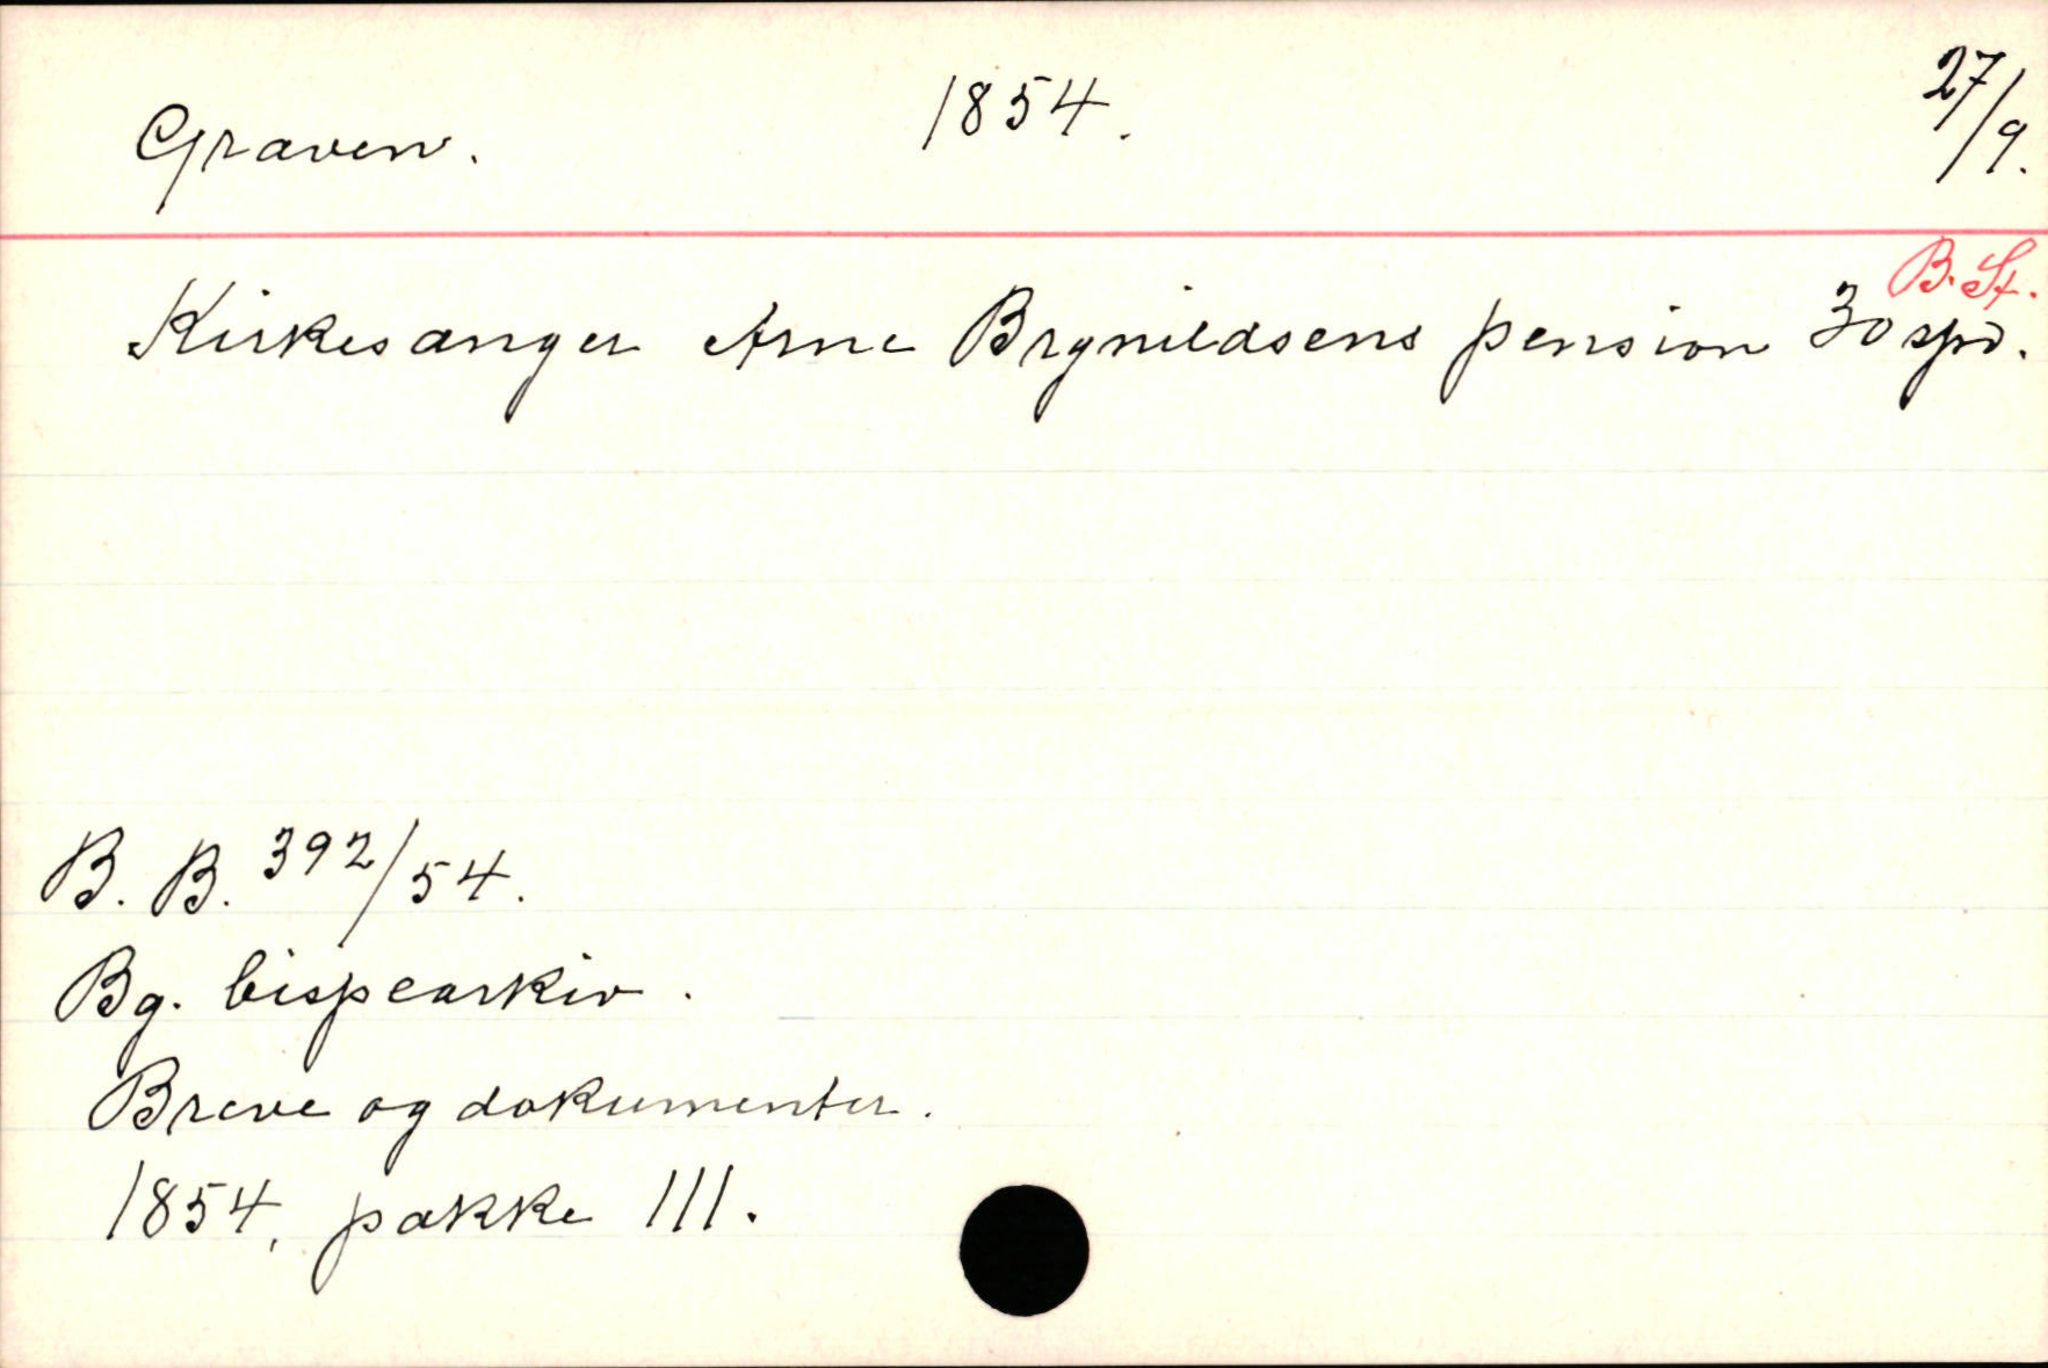 Graven. 1854. 27/9.
B. St.
Kirkesanger Arne Brynildsens pension 30 spd.
B. B. 392/54.
Bg. bispearkiv.
Breve og dokumenter.
1854, pakke III.